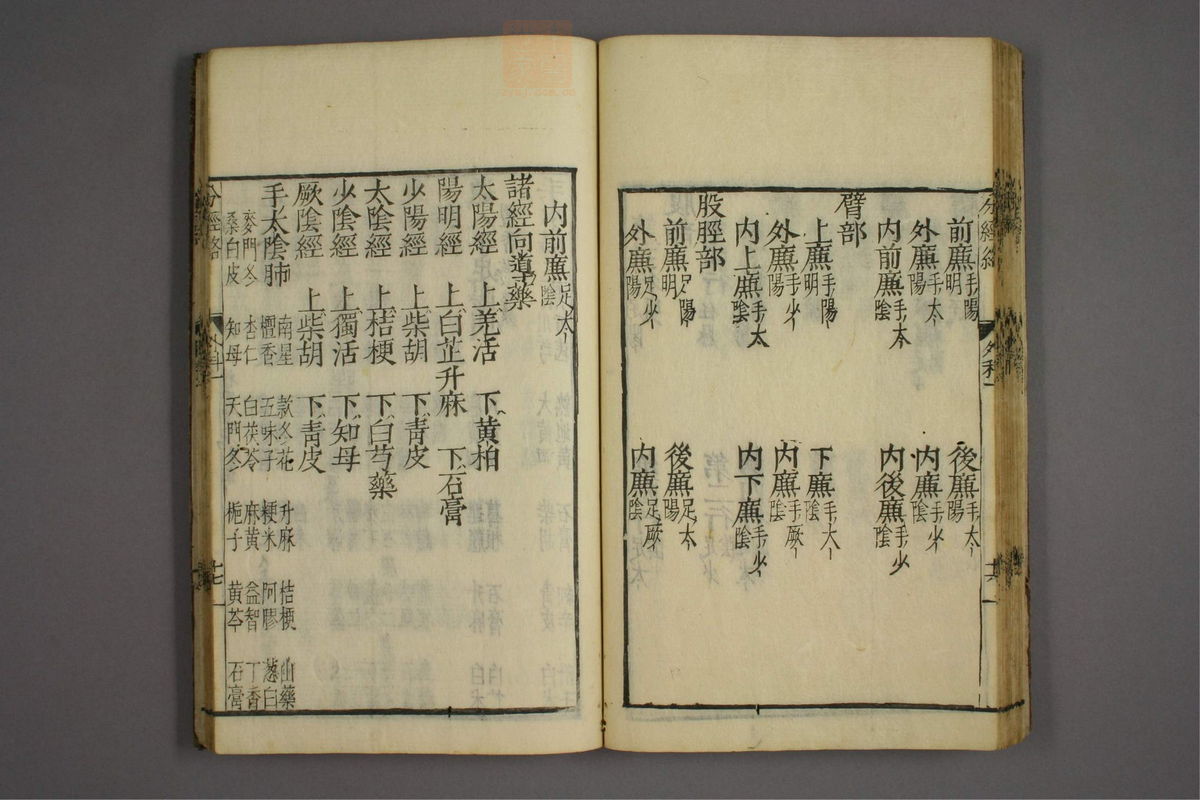 前廉手陽明 後廉手太陽
外廉手太陽 內廉手少陰
內前廉手太陰 內後廉手少陰
臂部
上廉手陽明 下廉手太陰
外廉手少陽 內廉手厥陰
內上廉手太陰 內下廉手少陰
股脛部
前廉足陽明 後廉足太陽
外廉足少陽 內廉足厥陰
內前廉足太陰
諸經向導藥
太陽經 上羌活 下黃柏
陽明經 上白芷升麻 下石膏
少陽經 上柴胡 下青皮
太陰經 上桔梗 下白芍藥
少陰經 上獨活 下知母
厥陰經 上柴胡 下青皮
手太陰肺 南星 款冬花 升麻 桔梗 山藥
檀香 五味子 粳米 阿膠 葱白
麥門冬 杏仁 白茯苓 麻黃 益智 丁香
桑白皮 知母 天門冬 梔子 黃芩 石膏
分經絡 外科一 十七